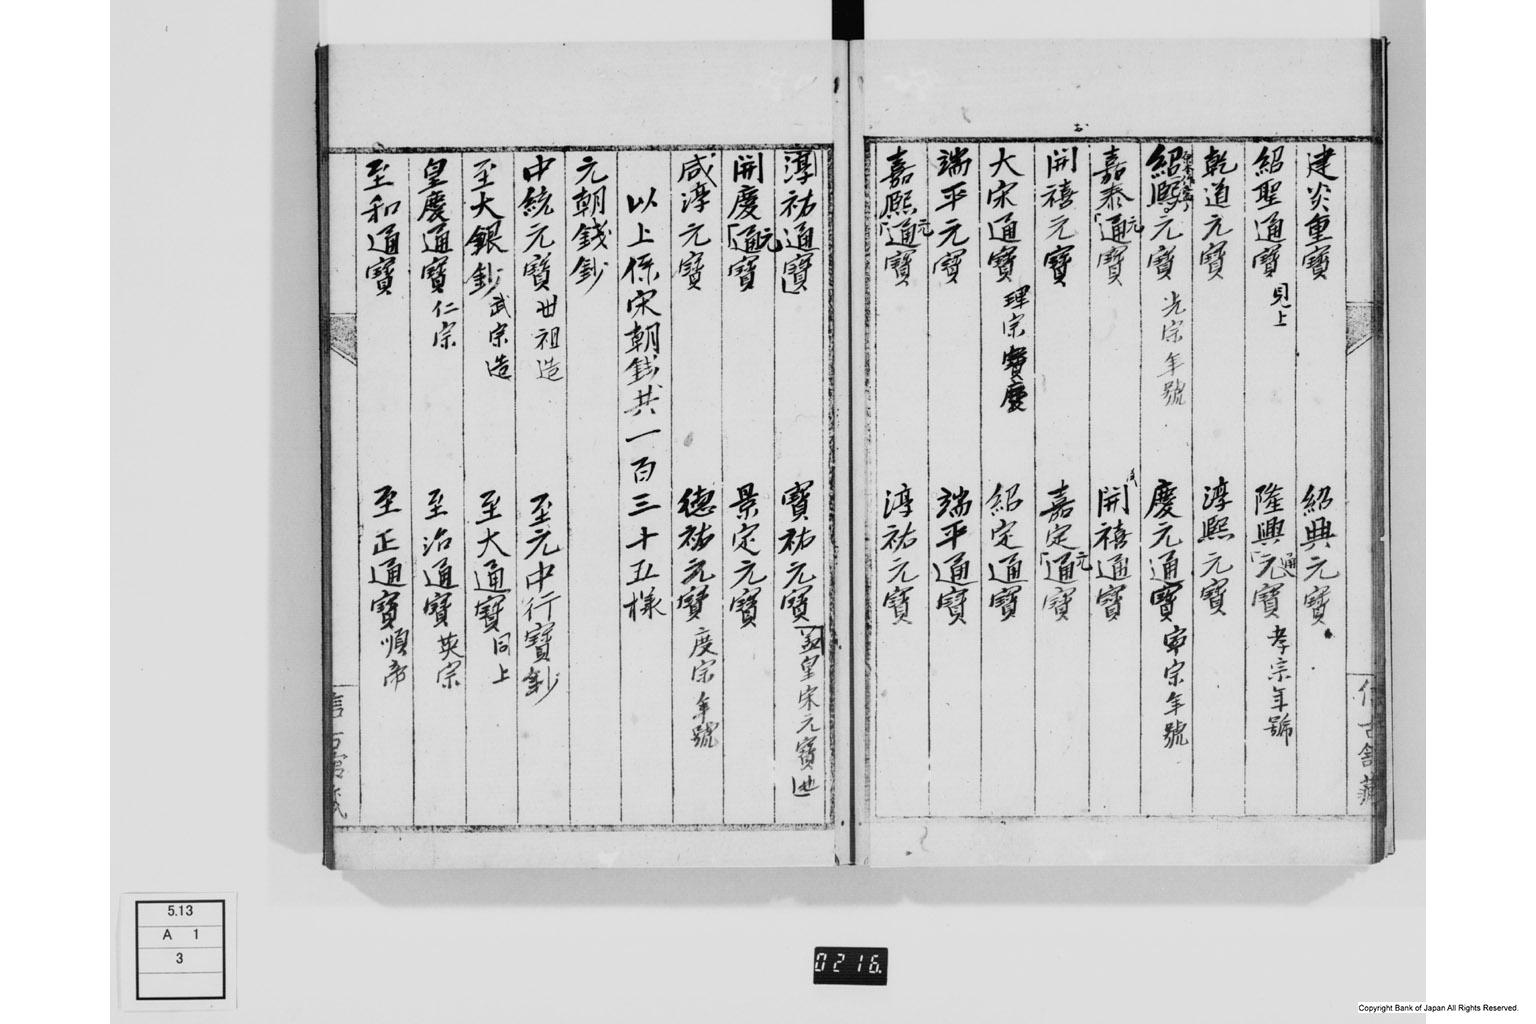 建炎重寶 紹興元寶
紹聖通寶 見上 隆興元寶 通 孝宗年號
乾道元寶 淳熙元寶
紹熙元寶 光宗年號 慶元通寶 寧宗年號
嘉泰通寶 元 開禧通寶
開禧元寶 嘉定通寶 元
大宋通寶 理宗寶慶 紹定通寶
端平元寶 端平通寶
嘉熙通寶 元 淳祐元寶
淳祐通寶 寶祐元寶 皇宋元寶也
開慶通寶 元 景定元寶
咸淳元寶 德祐元寶 度宗年號
以上係宋朝錢共一百三十五樣
元朝錢鈔
中統元寶 世祖造 至元中行寶鈔
至大銀鈔 武宗造 至大通寶 同上
皇慶通寶 仁宗 至治通寶 英宗
至和通寶 至正通寶 順帝
5.13
A 1
3
0216.
Copyright Bank of Japan All Rights Reserved.